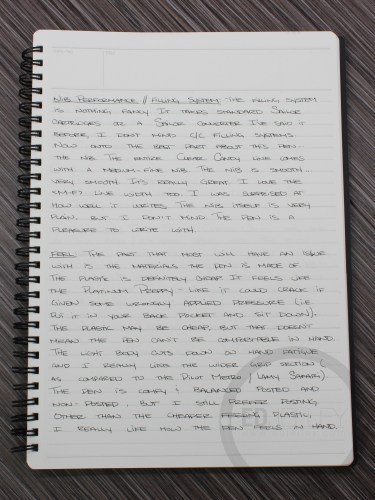 NIB PERFORMANCE // FILLING SYSTEM: THE FILLING SYSTEM
IS NOTHING FANCY. IT TAKES STANDARD SAILOR
CARTRIDGES OR A SAILOR CONVERTER. I'VE SAID IT
BEFORE, I DON'T MIND C/C FILLING SYSTEMS.
NOW ONTO THE BEST PART ABOUT THIS PEN...
THE NIB. THE ENTIRE CLEAR CANDY LINE COMES
WITH A MEDIUM-FINE NIB. THE NIB IS SMOOTH...
VERY SMOOTH. IT'S REALLY GREAT. I LOVE THE
"M-F" LINE WIDTH TOO. I WAS SURPRISED AT
HOW WELL IT WRITES. THE NIB ITSELF IS VERY
PLAIN, BUT I DON'T MIND. THE PEN IS A
PLEASURE TO WRITE WITH.
FEEL: THE PART THAT MOST WILL HAVE AN ISSUE
WITH IS THE MATERIALS THE PEN IS MADE OF.
THE PLASTIC IS DEFINITELY CHEAP. IT FEELS LIKE
THE PLATINUM PREPPY - LIKE IT COULD CRACK IF
GIVEN SOME WRONGLY APPLIED PRESSURE (I.E.
PUT IT IN YOUR BACK POCKET AND SIT DOWN).
THE PLASTIC MAY BE CHEAP, BUT THAT DOESN'T
MEAN THE PEN CAN'T BE COMFORTABLE IN HAND.
THE LIGHT BODY CUTS DOWN ON HAND FATIGUE
AND I REALLY LIKE THE WIDER GRIP SECTION (
AS COMPARED TO THE PILOT METRO / LAMY SAFARI).
THE PEN IS COMFY & BALANCED POSTED AND
NON-POSTED, BUT I STILL PREFER POSTING.
OTHER THAN THE CHEAPER FEELING PLASTIC,
I REALLY LIKE HOW THE PEN FEELS IN HAND.